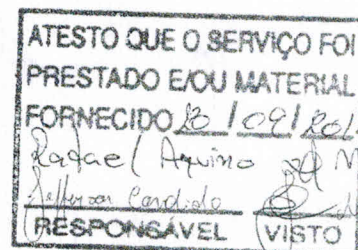 ATESTO QUE O SERVIÇO FOI
PRESTADO E/OU MATERIAL
FORNECIDO / 09 / 201
Rafael Aquino
Jefferson Candido
RESPONSÁVEL VISTO